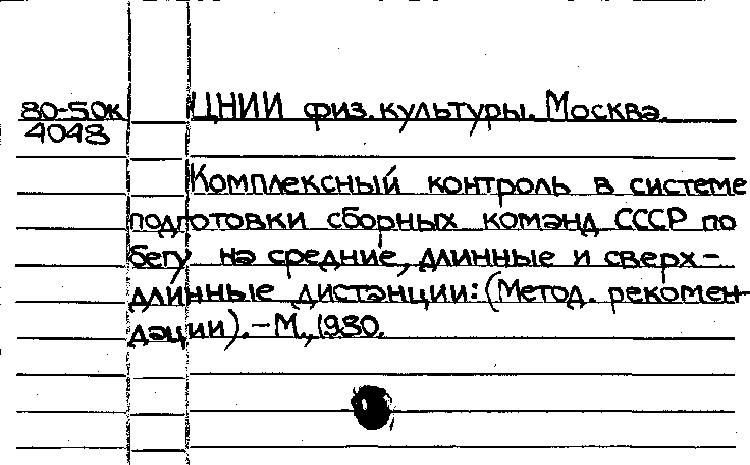 80-50к
4048
ЦНИИ физ. культуры. Москва.
Комплексный контроль в системе
подготовки сборных команд СССР по
бегу на средние, длинные и сверх-
длинные дистанции: (Метод. рекомен-
дации). - М., 1980.